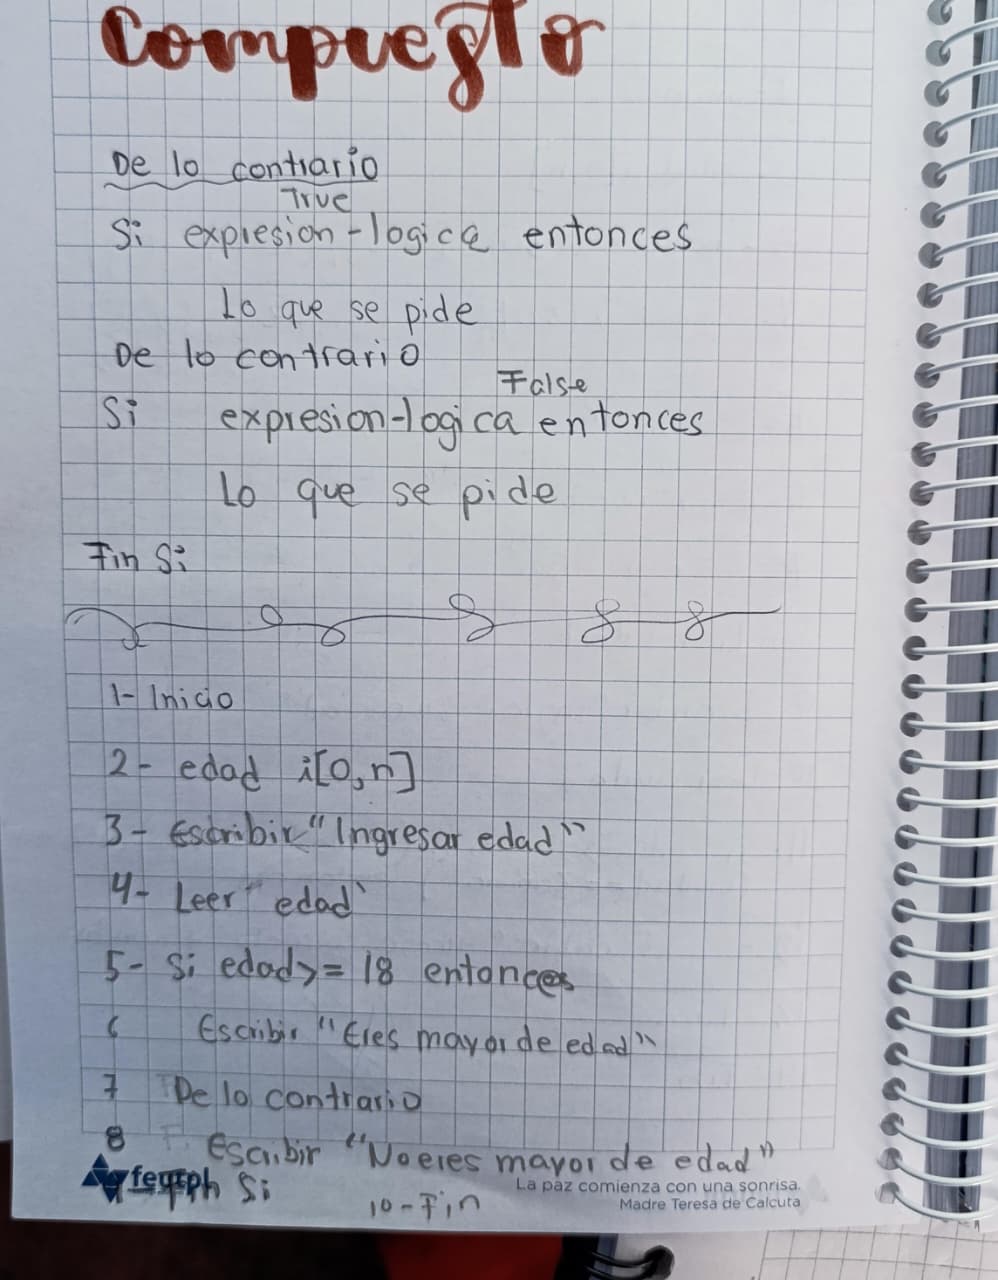 Compuesto
De lo contrario
True
Si expresion-logica entonces
Lo que se pide
De lo contrario
False
Si expresion-logica entonces
Lo que se pide
Fin Si
1- Inicio
2- edad i[0,n]
3- Escribir "Ingresar edad"
4- Leer "edad"
5- Si edad>= 18 entonces
6 Escribir "Eres mayor de edad"
7 De lo contrario
8 Escribir "No eres mayor de edad"
Si
10-Fin
La paz comienza con una sonrisa.
Madre Teresa de Calcuta